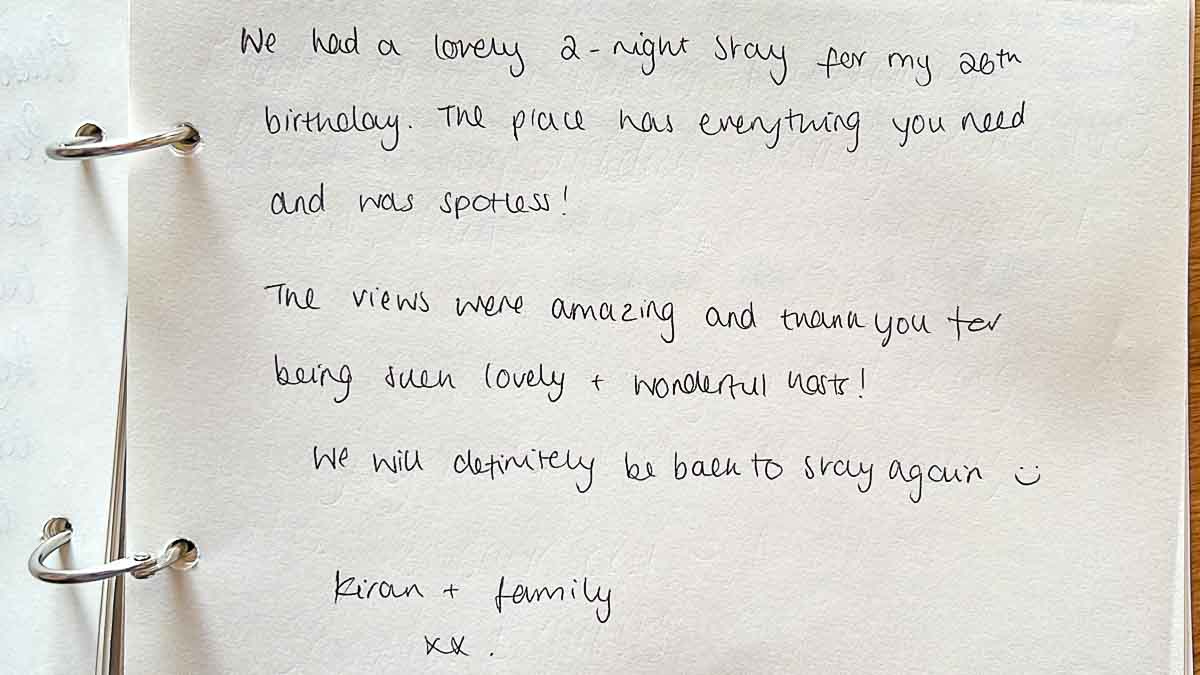 We had a lovely 2-night stay for my 26th
birthday. The place has everything you need
and was spotless!
The views were amazing and thank you for
being such lovely + wonderful hosts!
We will definitely be back to stay again :)
Kiran + family
xx.